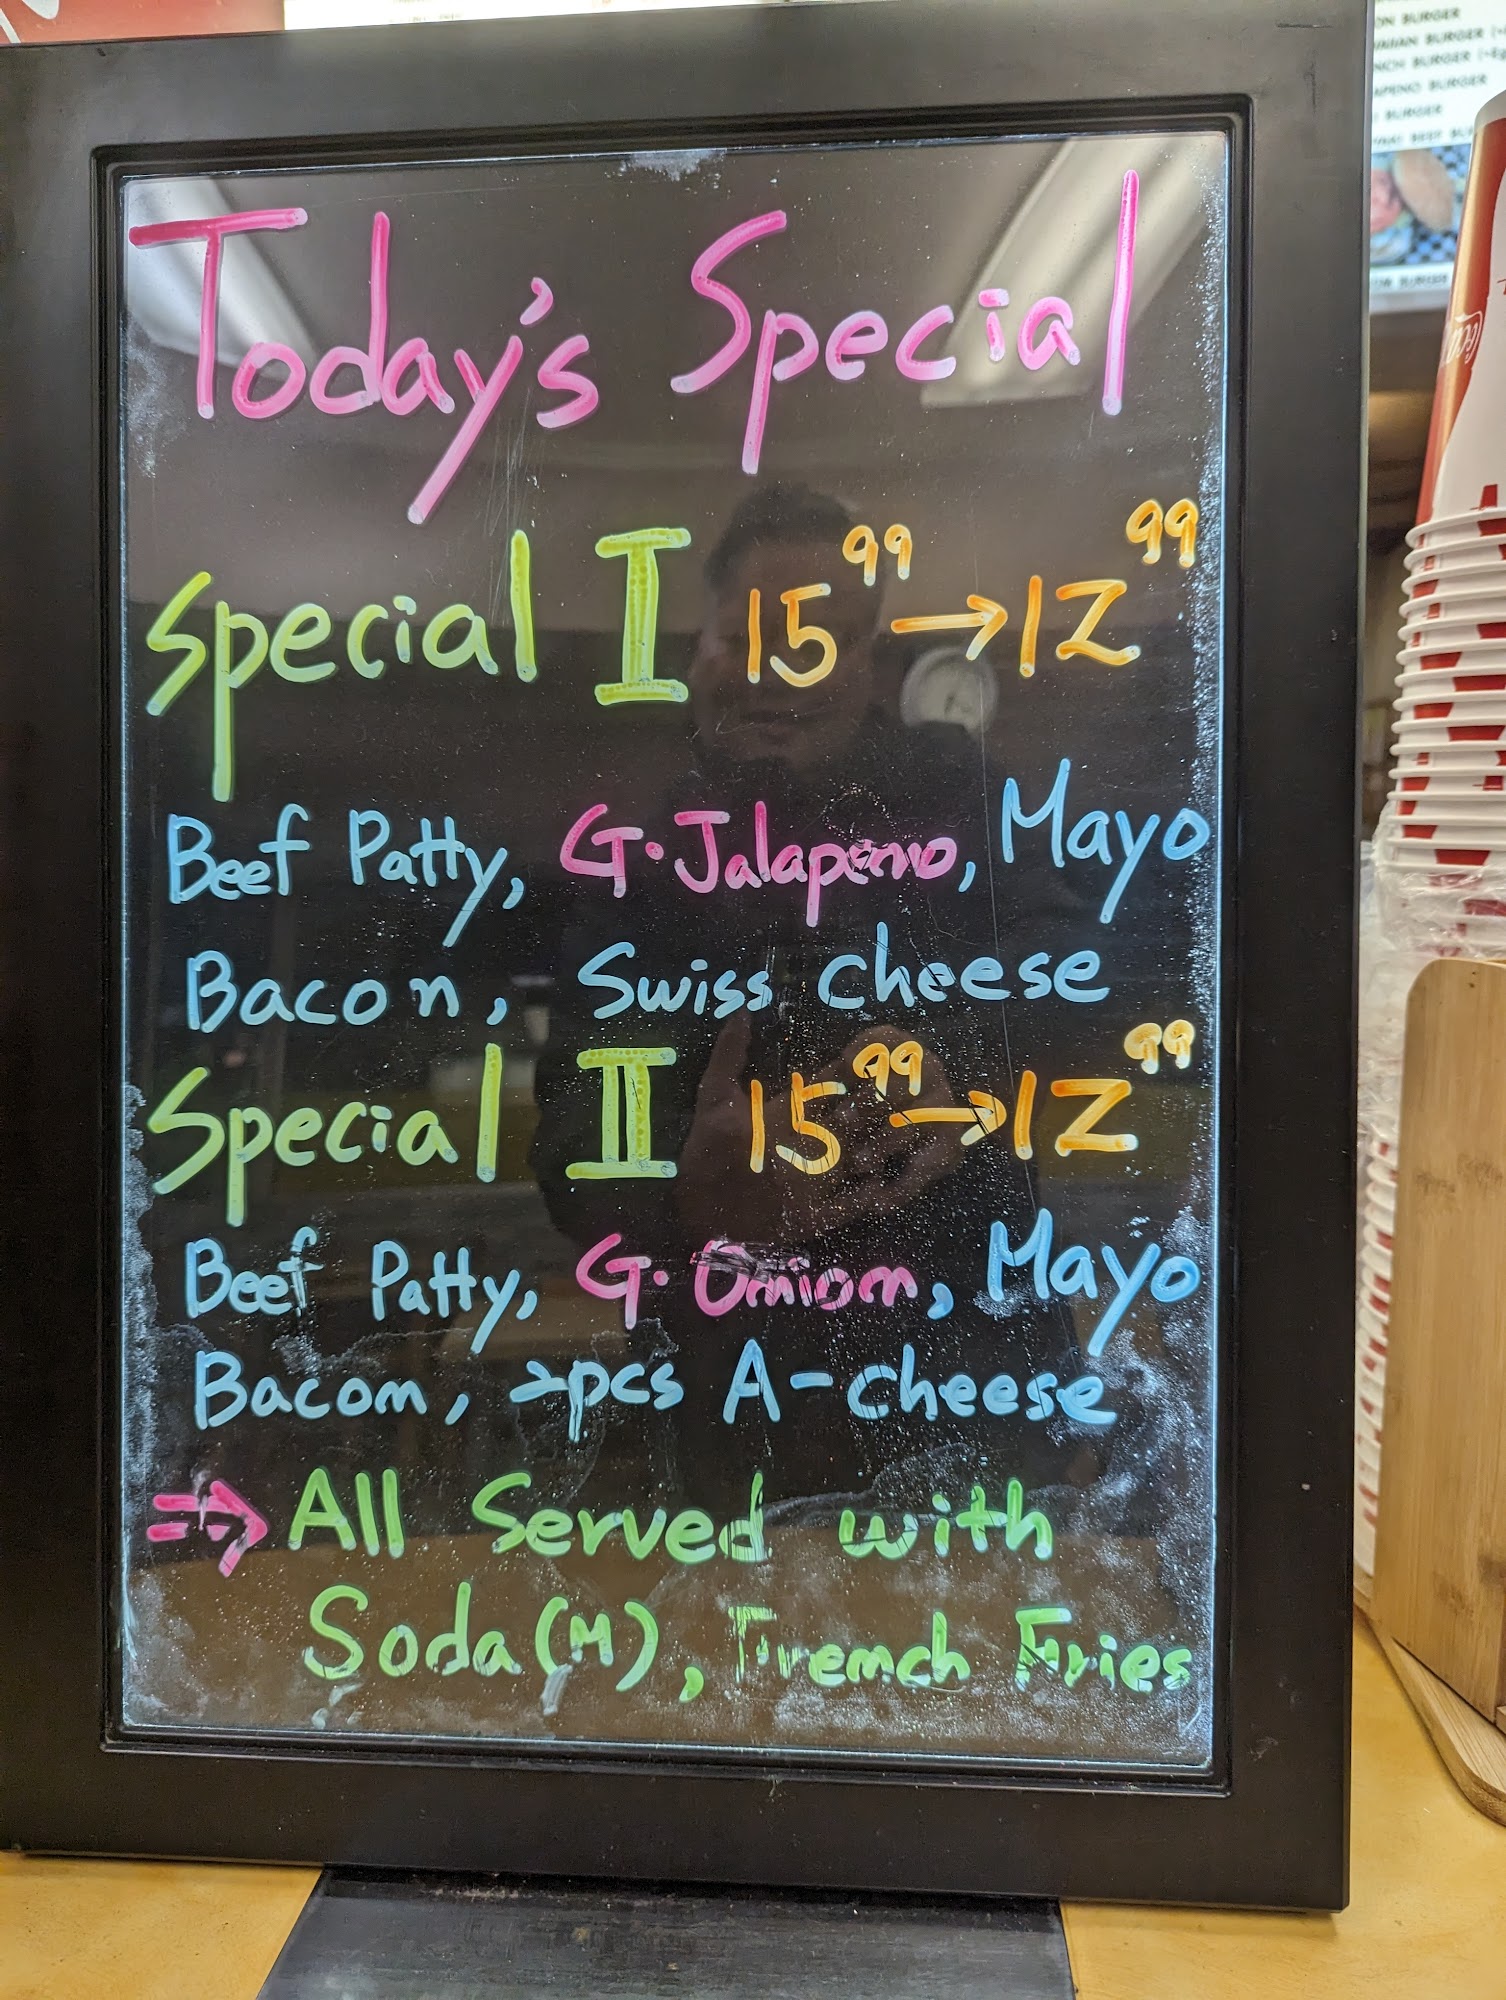 Today's Special
Special I 15 99 → 12 99
Beef Patty, G. Jalapeno, Mayo
Bacon, Swiss cheese
Special II 15 99 → 12 99
Beef Patty, G. Onion, Mayo
Bacon, 2pcs A-cheese
⇒ All Served with
Soda (M), French Fries
BURGER
BURGER
BURGER
BURGER
BURGER